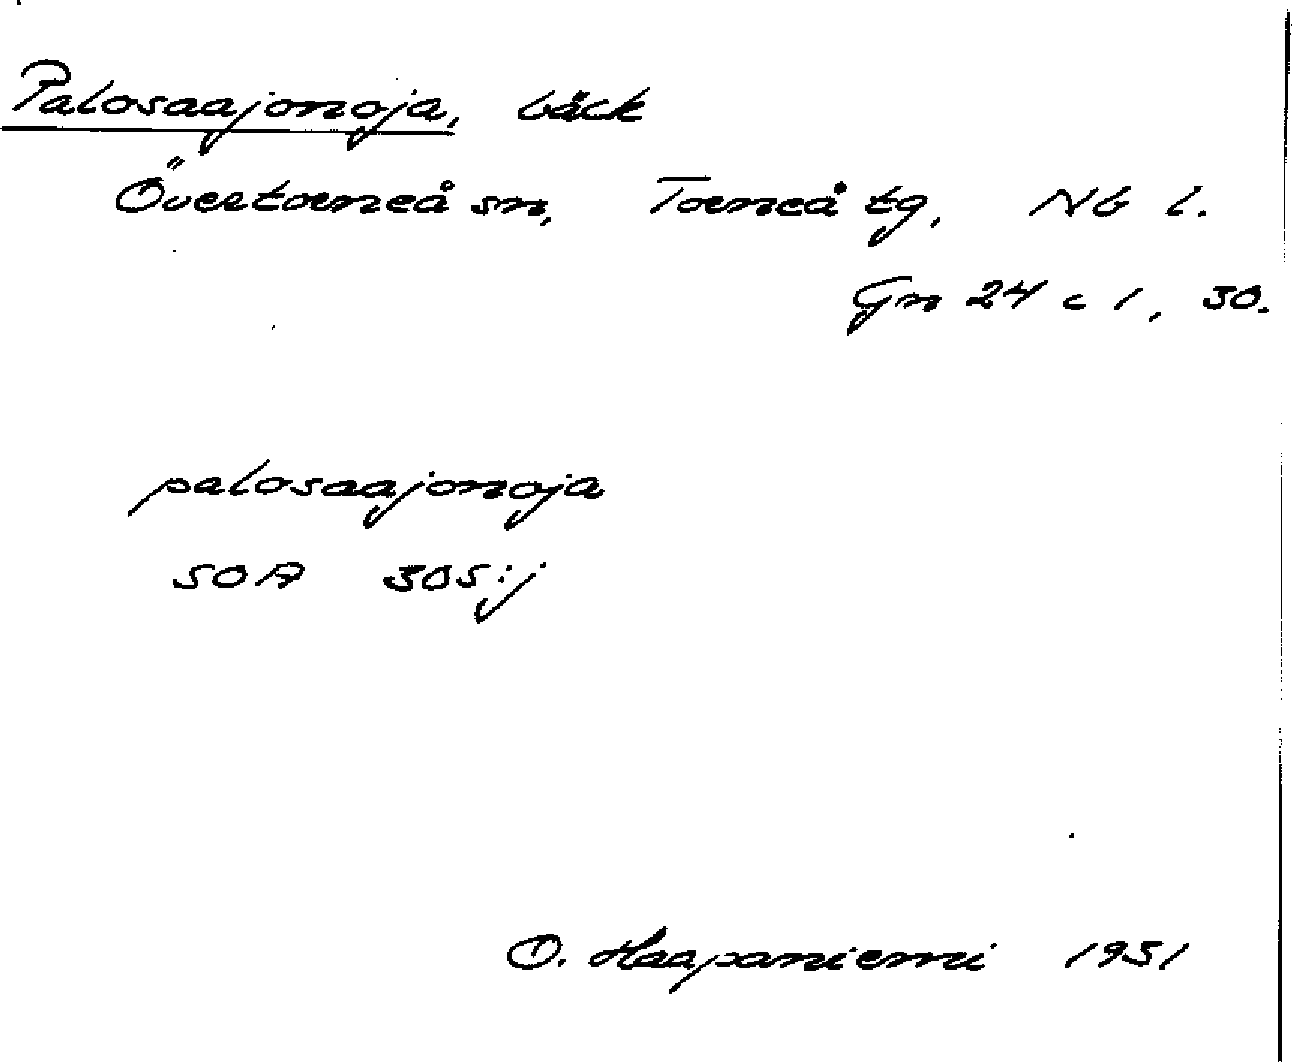 Palosaajonoja, bäck
Övertorneå sn, Torneå tg, Nb l.
Gn 24 c 1, 30.
palosaajonoja
SOA 305:j
O. Haapaniemi 1951